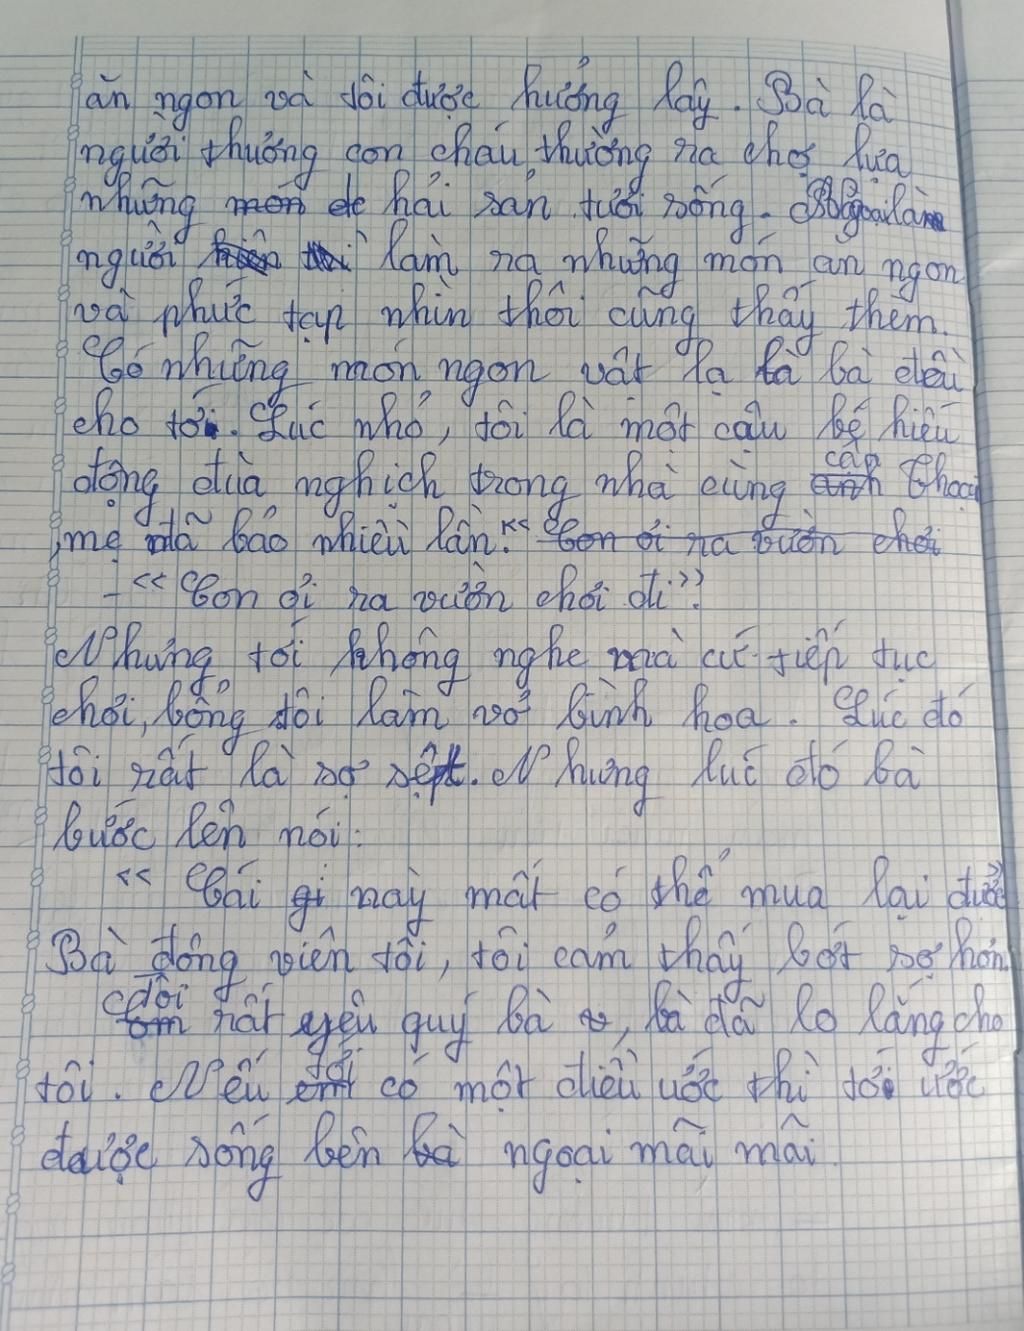 ăn ngon và tôi được hưởng lây. Bà là
người thương con cháu thường ra chợ lựa
những món hải sản tươi sống. Bà ngoại là
người làm ra những món ăn ngon
và phức tạp nhìn thôi cũng thấy thèm.
Có những món ngon vật lạ là bà đều
cho tôi. Lúc nhỏ, tôi là một cậu bé hiếu
động đùa nghịch trong nhà cùng cặp Thoại
mẹ đã bảo nhiều lần: "Con ơi ra vườn chơi
- "Con ơi ra vườn chơi đi".
Nhưng tôi không nghe mà cứ tiếp tục
chơi, bỗng tôi làm vỡ bình hoa. Lúc đó
tôi rất là sợ sệt. Nhưng lúc đó bà
bước lên nói:
" Cái gì này mất có thể mua lại được
Bà động viên tôi, tôi cảm thấy bớt sợ hơn.
tôi rất yêu quý bà, bà đã lo lắng cho
tôi. Nếu tôi có một điều ước thì tôi ước
được sống bên bà ngoại mãi mãi.